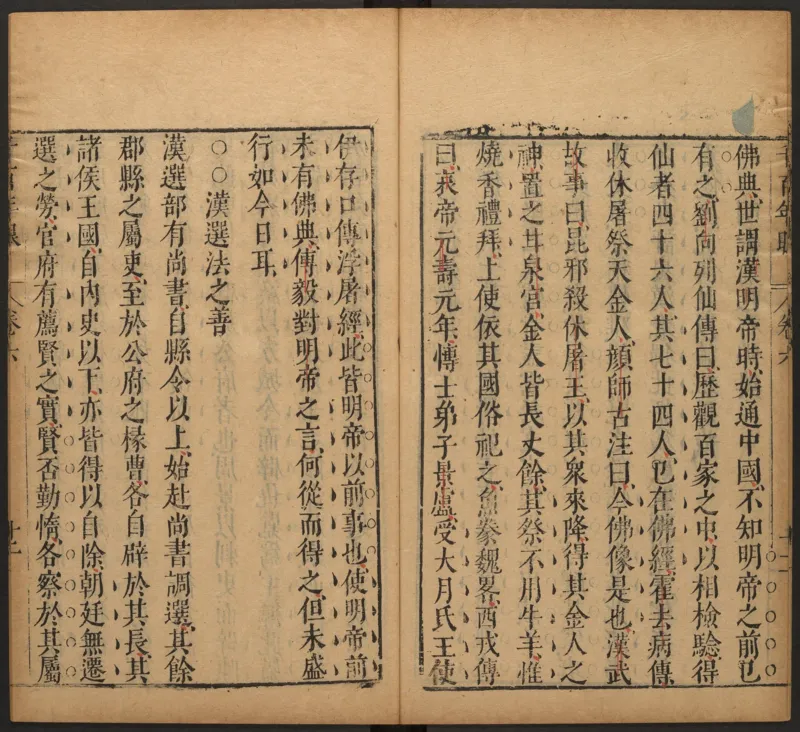 佛典世謂漢明帝時始通中國不知明帝之前已
有之劉向列仙傳曰歷觀百家之中以相檢驗得
仙者四十六人其七十四人已在佛經霍去病傳
收休屠祭天金人顏師古注曰今佛像是也漢武
故事曰昆邪殺休屠王以其衆來降得其金人之
神置之甘泉宮金人皆長丈餘其祭不用牛羊惟
燒香禮拜上使依其國俗祀之魚豢魏畧西戎傳
曰哀帝元壽元年博士弟子景盧受大月氏王使
伊存口傳浮屠經此皆明帝以前事也使明帝前
未有佛典傅毅對明帝之言何從而得之但未盛
行如今日耳
○○漢選法之善
漢選部有尚書自縣令以上始赴尚書調選其餘
郡縣之屬吏至於公府之椽曹各自辟於其長其
諸侯王國自內史以下亦皆得以自除朝廷無遷
選之勞官府有薦賢之實賢否勤惰各察於其屬
卷六
卷六